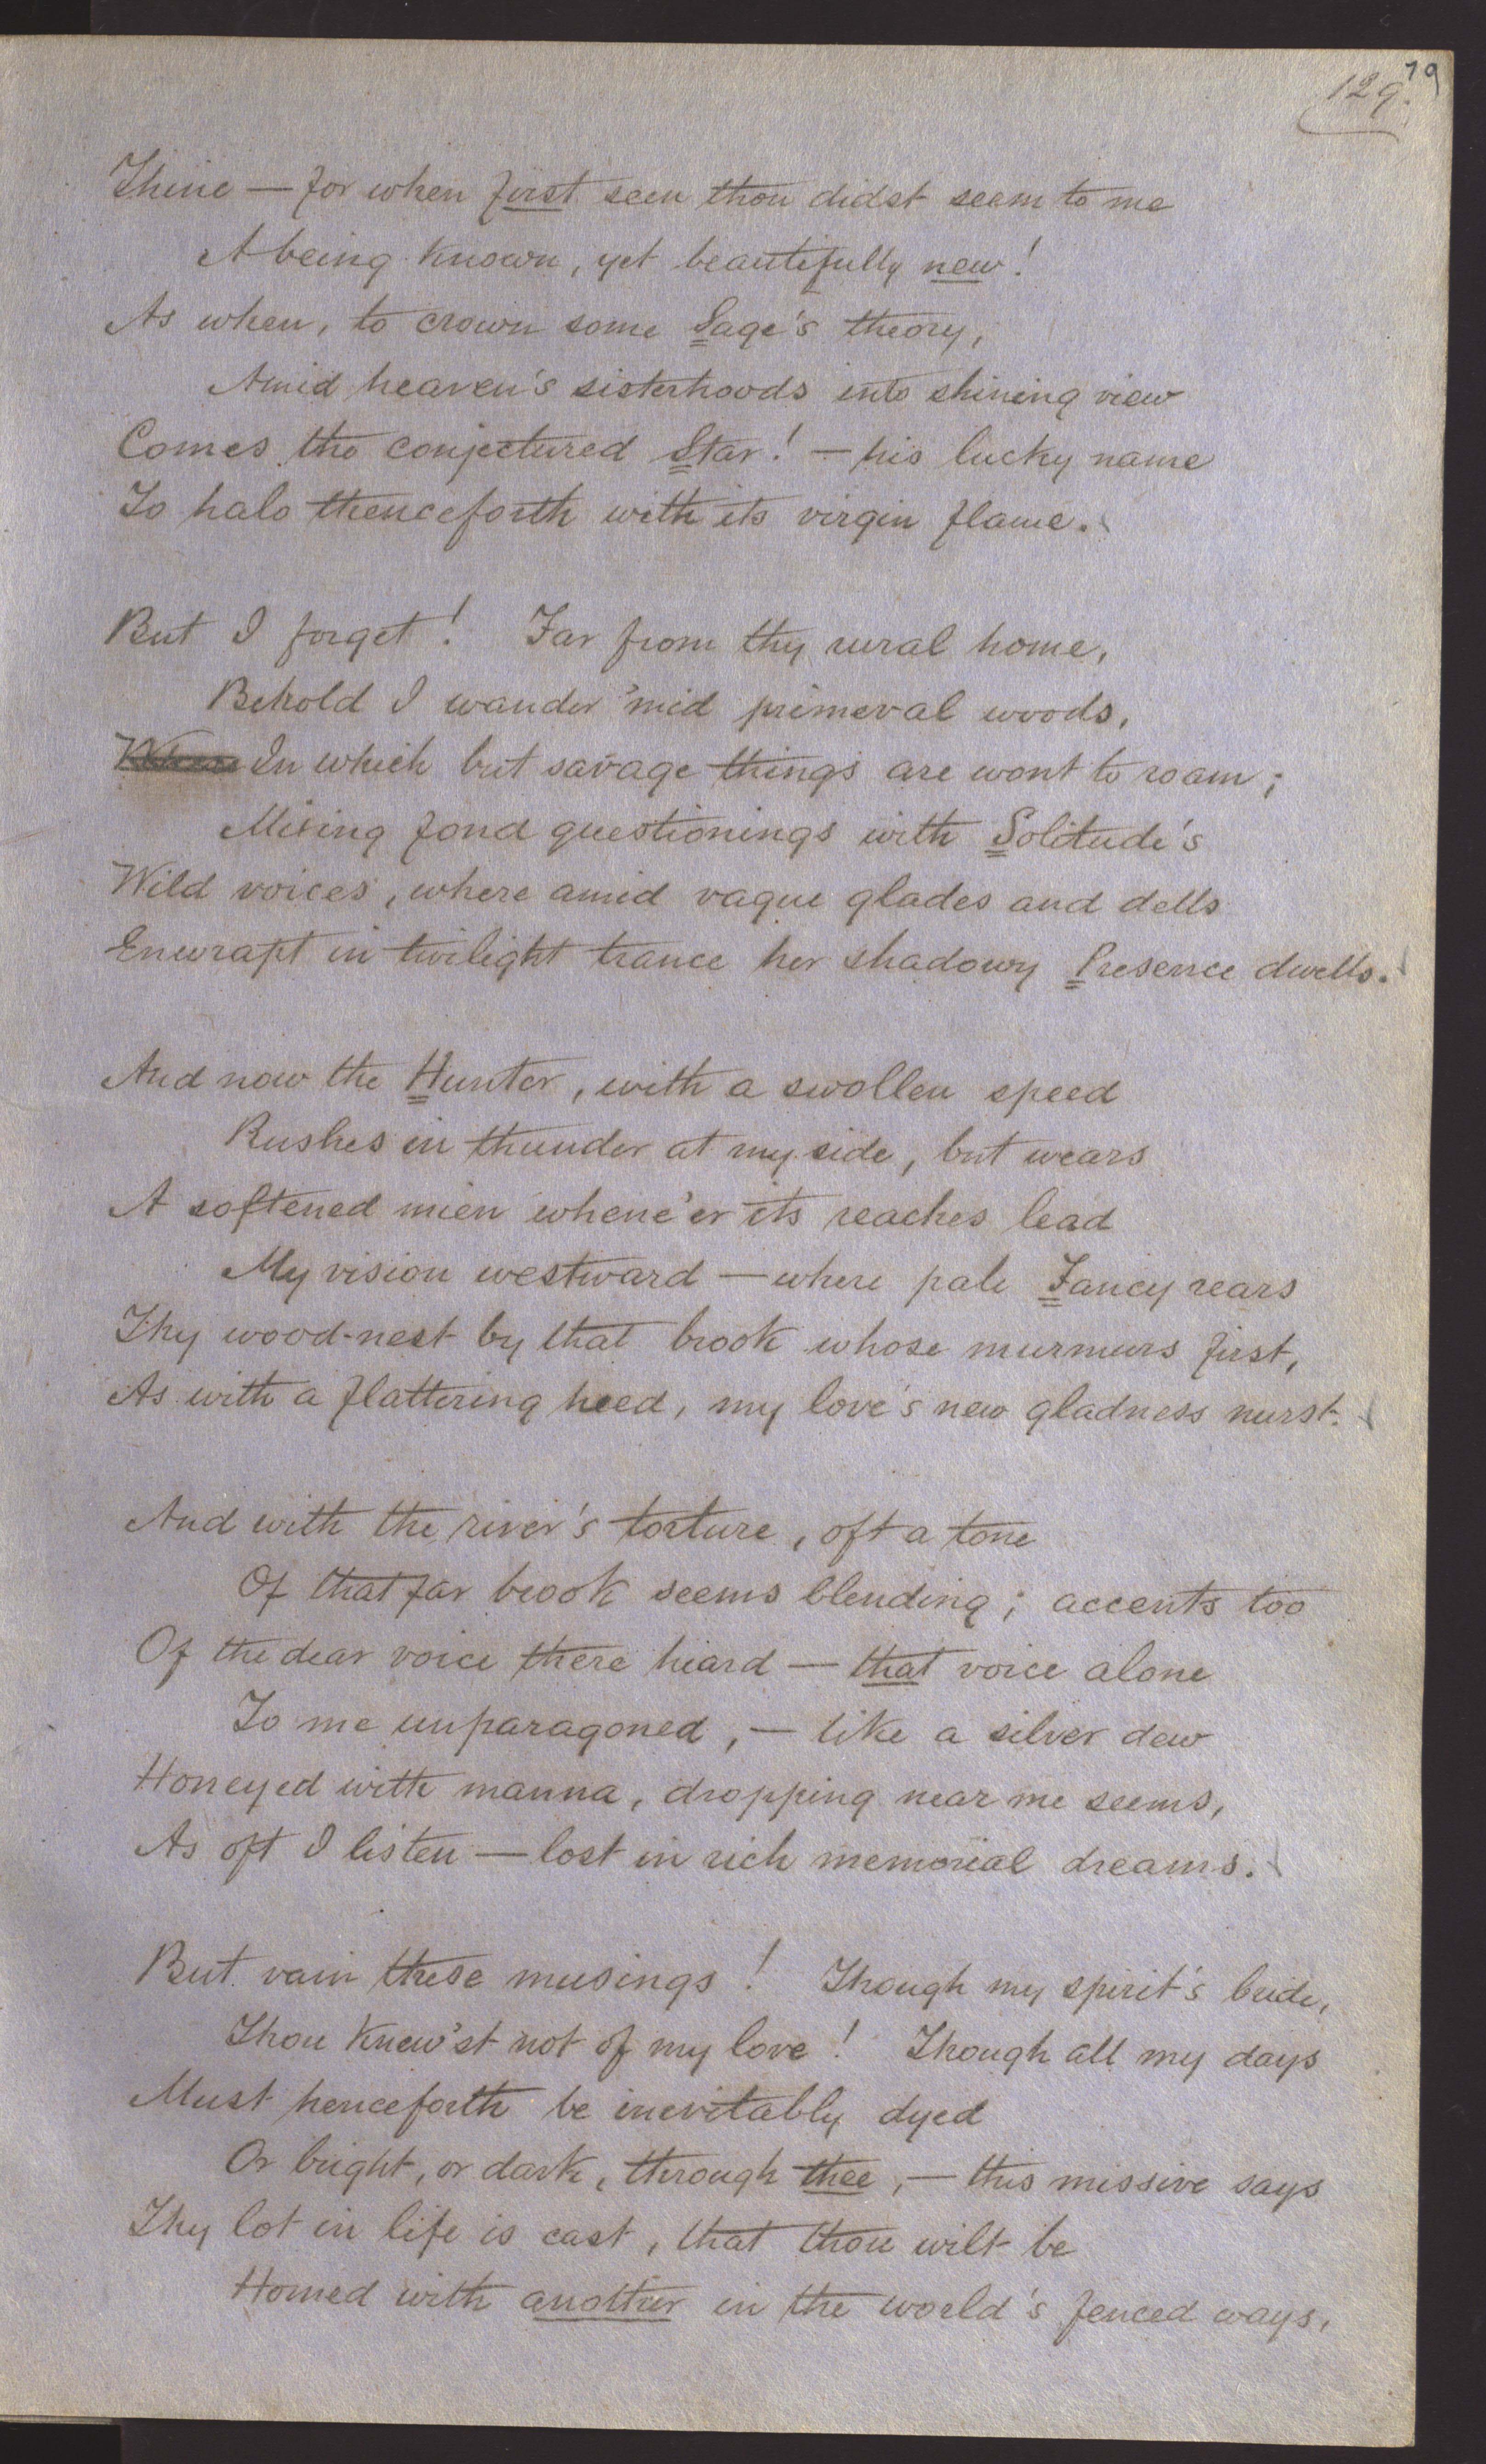 79
129.
Thine — for when first seen thou didst seem to me
A being known, yet beautifully new!
As when, to crown some Sage's theory,
Amid heaven's sisterhoods into shining view
Comes the conjectured Star! — his lucky name
To halo thenceforth with its virgin flame.
But I forget! Far from thy rural home,
Behold I wander 'mid primeval woods,
Where In which but savage things are wont to roam;
Mixing fond questionings with Solitude's
Wild voices, where amid vague glades and dells
Enwrapt in twilight trance her shadowy Presence dwells.
And now the Hunter, with a swollen speed
Rushes in thunder at my side, but wears
A softened mien whene'er its reaches lead
My vision westward — where pale Fancy rears
Thy wood-nest by that brook whose murmurs first,
As with a flattering heed, my love's new gladness nurst.
And with the river's torture, oft a tone
Of that far brook seems blending; accents too
Of the dear voice there heard — that voice alone
To me unparagoned, — like a silver dew
Honeyed with manna, dropping near me seems,
As oft I listen — lost in rich memorial dreams.
But vain these musings! Though my spirit's bride,
Thou knew'st not of my love! Though all my days
Must henceforth be inevitably dyed
Or bright, or dark, through thee, — this missive says
Thy lot in life is cast, that thou wilt be
Homed with another in the world's fenced ways,